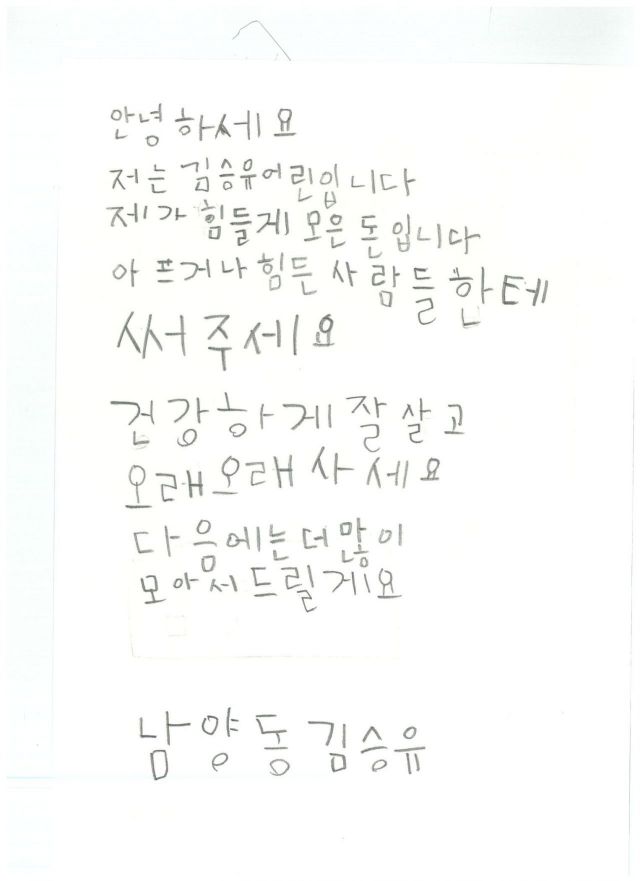 안녕하세요
저는 김승유어린입니다
제가 힘들게 모은 돈입니다
아프거나 힘든 사람들한테
써주세요
건강하게 잘살고
오래오래 사세요
다음에는더많이
모아서드릴게요
남양동김승유